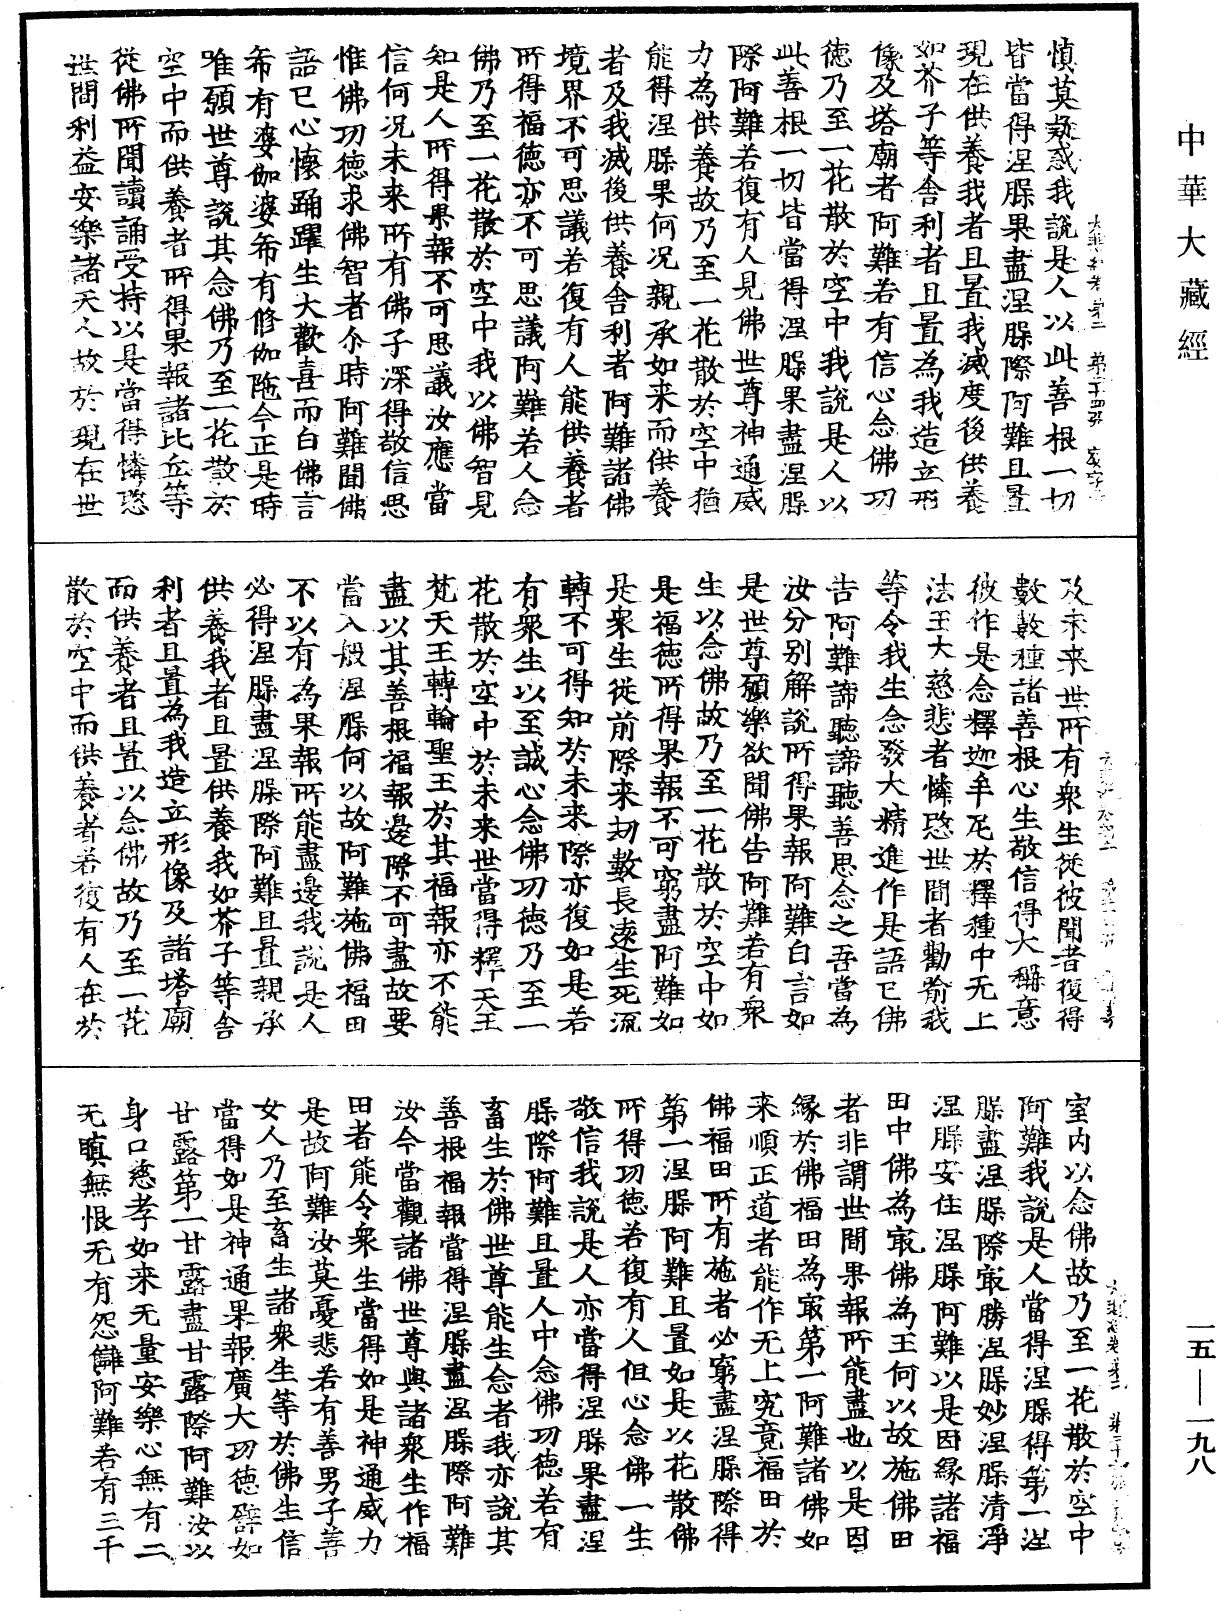 中華大藏經
慎莫疑惑我說是人以此善根一切
皆當得涅槃果盡涅槃際阿難且置
現在供養我者且置我滅度後供養
如芥子等舍利者且置為我造立形
像及塔廟者阿難若有信心念佛功
德乃至一花散於空中我說是人以
此善根一切皆當得涅槃果盡涅槃
際阿難若復有人見佛世尊神通威
力為供養故乃至一花散於空中猶
能得涅槃果何況親承如来而供養
者及我滅後供養舍利者阿難諸佛
境界不可思議若復有人能供養者
所得福德亦不可思議阿難若人念
佛乃至一花散於空中我以佛智見
知是人所得果報不可思議汝應當
信何況未来所有佛子深得敬信思
惟佛功德求佛智者尒時阿難聞佛
語已心懷踊躍生大歡喜而白佛言
希有婆伽婆希有修伽陁今正是時
唯願世尊說其念佛乃至一花散於
空中而供養者所得果報諸比丘等
從佛所聞讀誦受持以是當得憐愍
世間利益安樂諸天人故於現在世
及未来世所有衆生從彼聞者復得
數數種諸善根心生敬信得大稱意
彼作是念釋迦牟尼於釋種中无上
法王大慈悲者憐愍世間者勸喻我
等令我生念發大精進作是語已佛
告阿難諦聽諦聽善思念之吾當為
汝分別解說所得果報阿難白言如
是世尊願樂欲聞佛告阿難若有衆
生以念佛故乃至一花散於空中如
是福德所得果報不可窮盡阿難如
是衆生從前際来劫數長遠生死流
轉不可得知於未来際亦復如是若
有衆生以至誠心念佛功德乃至一
花散於空中於未来世當得釋天王
梵天王轉輪聖王於其福報亦不能
盡以其善根福報邊際不可盡故要
當入般涅槃何以故阿難施佛福田
不以有為果報所能盡邊我說是人
必得涅槃盡涅槃際阿難且置親承
供養我者且置供養我如芥子等舍
利者且置為我造立形像及諸塔廟
而供養者且置以念佛故乃至一花
散於空中而供養者若復有人在於
室内以念佛故乃至一花散於空中
阿難我說是人當得涅槃得第一涅
槃盡涅槃際㝡勝涅槃妙涅槃清淨
涅槃安住涅槃阿難以是因緣諸福
田中佛為㝡佛為王何以故施佛田
者非謂世間果報所能盡也以是因
緣於佛福田為㝡第一阿難諸佛如
来順正道者能作无上究竟福田於
佛福田所有施者必窮盡涅槃際得
第一涅槃阿難且置如是以花散佛
所得功德若復有人但心念佛一生
敬信我說是人亦當得涅槃果盡涅
槃際阿難且置人中念佛功德若有
畜生於佛世尊能生念者我亦說其
善根福報當得涅槃盡涅槃際阿難
汝今當觀諸佛世尊與諸衆生作福
田者能令衆生當得如是神通威力
是故阿難汝莫憂悲若有善男子善
女人乃至畜生諸衆生等於佛生信
當得如是神通果報廣大功德譬如
甘露第一甘露盡甘露際阿難汝以
身口慈孝如来无量安樂心無有二
无瞋無恨无有怨讎阿難若有三千
一五—一九八